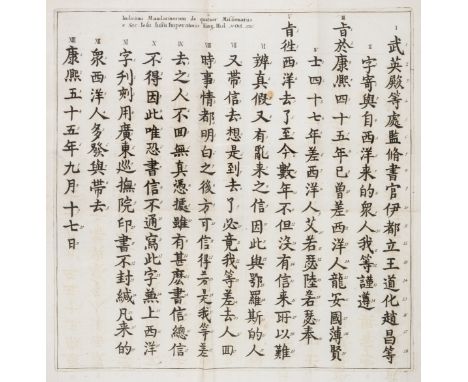 Mandarinorum de quatuor Missionariis
e Soc. Jesu Imperatoris
I
武英殿等處監修書官伊都立王道化趙昌等
II
字寄與自西洋來的衆人我等謹遵
III
旨於康熙四十五年已曾差西洋人龍安國薄賢
IV
士四十七年差西洋人艾若瑟陸若瑟奉
V
旨徃西洋去了至今數年不但沒有信來所以難
VI
辨真假又有亂來之信因此與鄂羅斯的人
VII
又帶信去想是到去了必竟我等差去人回
VIII
時事情都明白之後方可信得若是我等差
IX
去之人不回無真憑據雖有甚麽書信總信
X
不得因此唯恐書信不通寫此字兼上西洋
XI
字刋刻用廣東巡撫院印書不封緘凡來的
XII
衆西洋人多發與帶去
XIII
康熙五十五年九月十七日